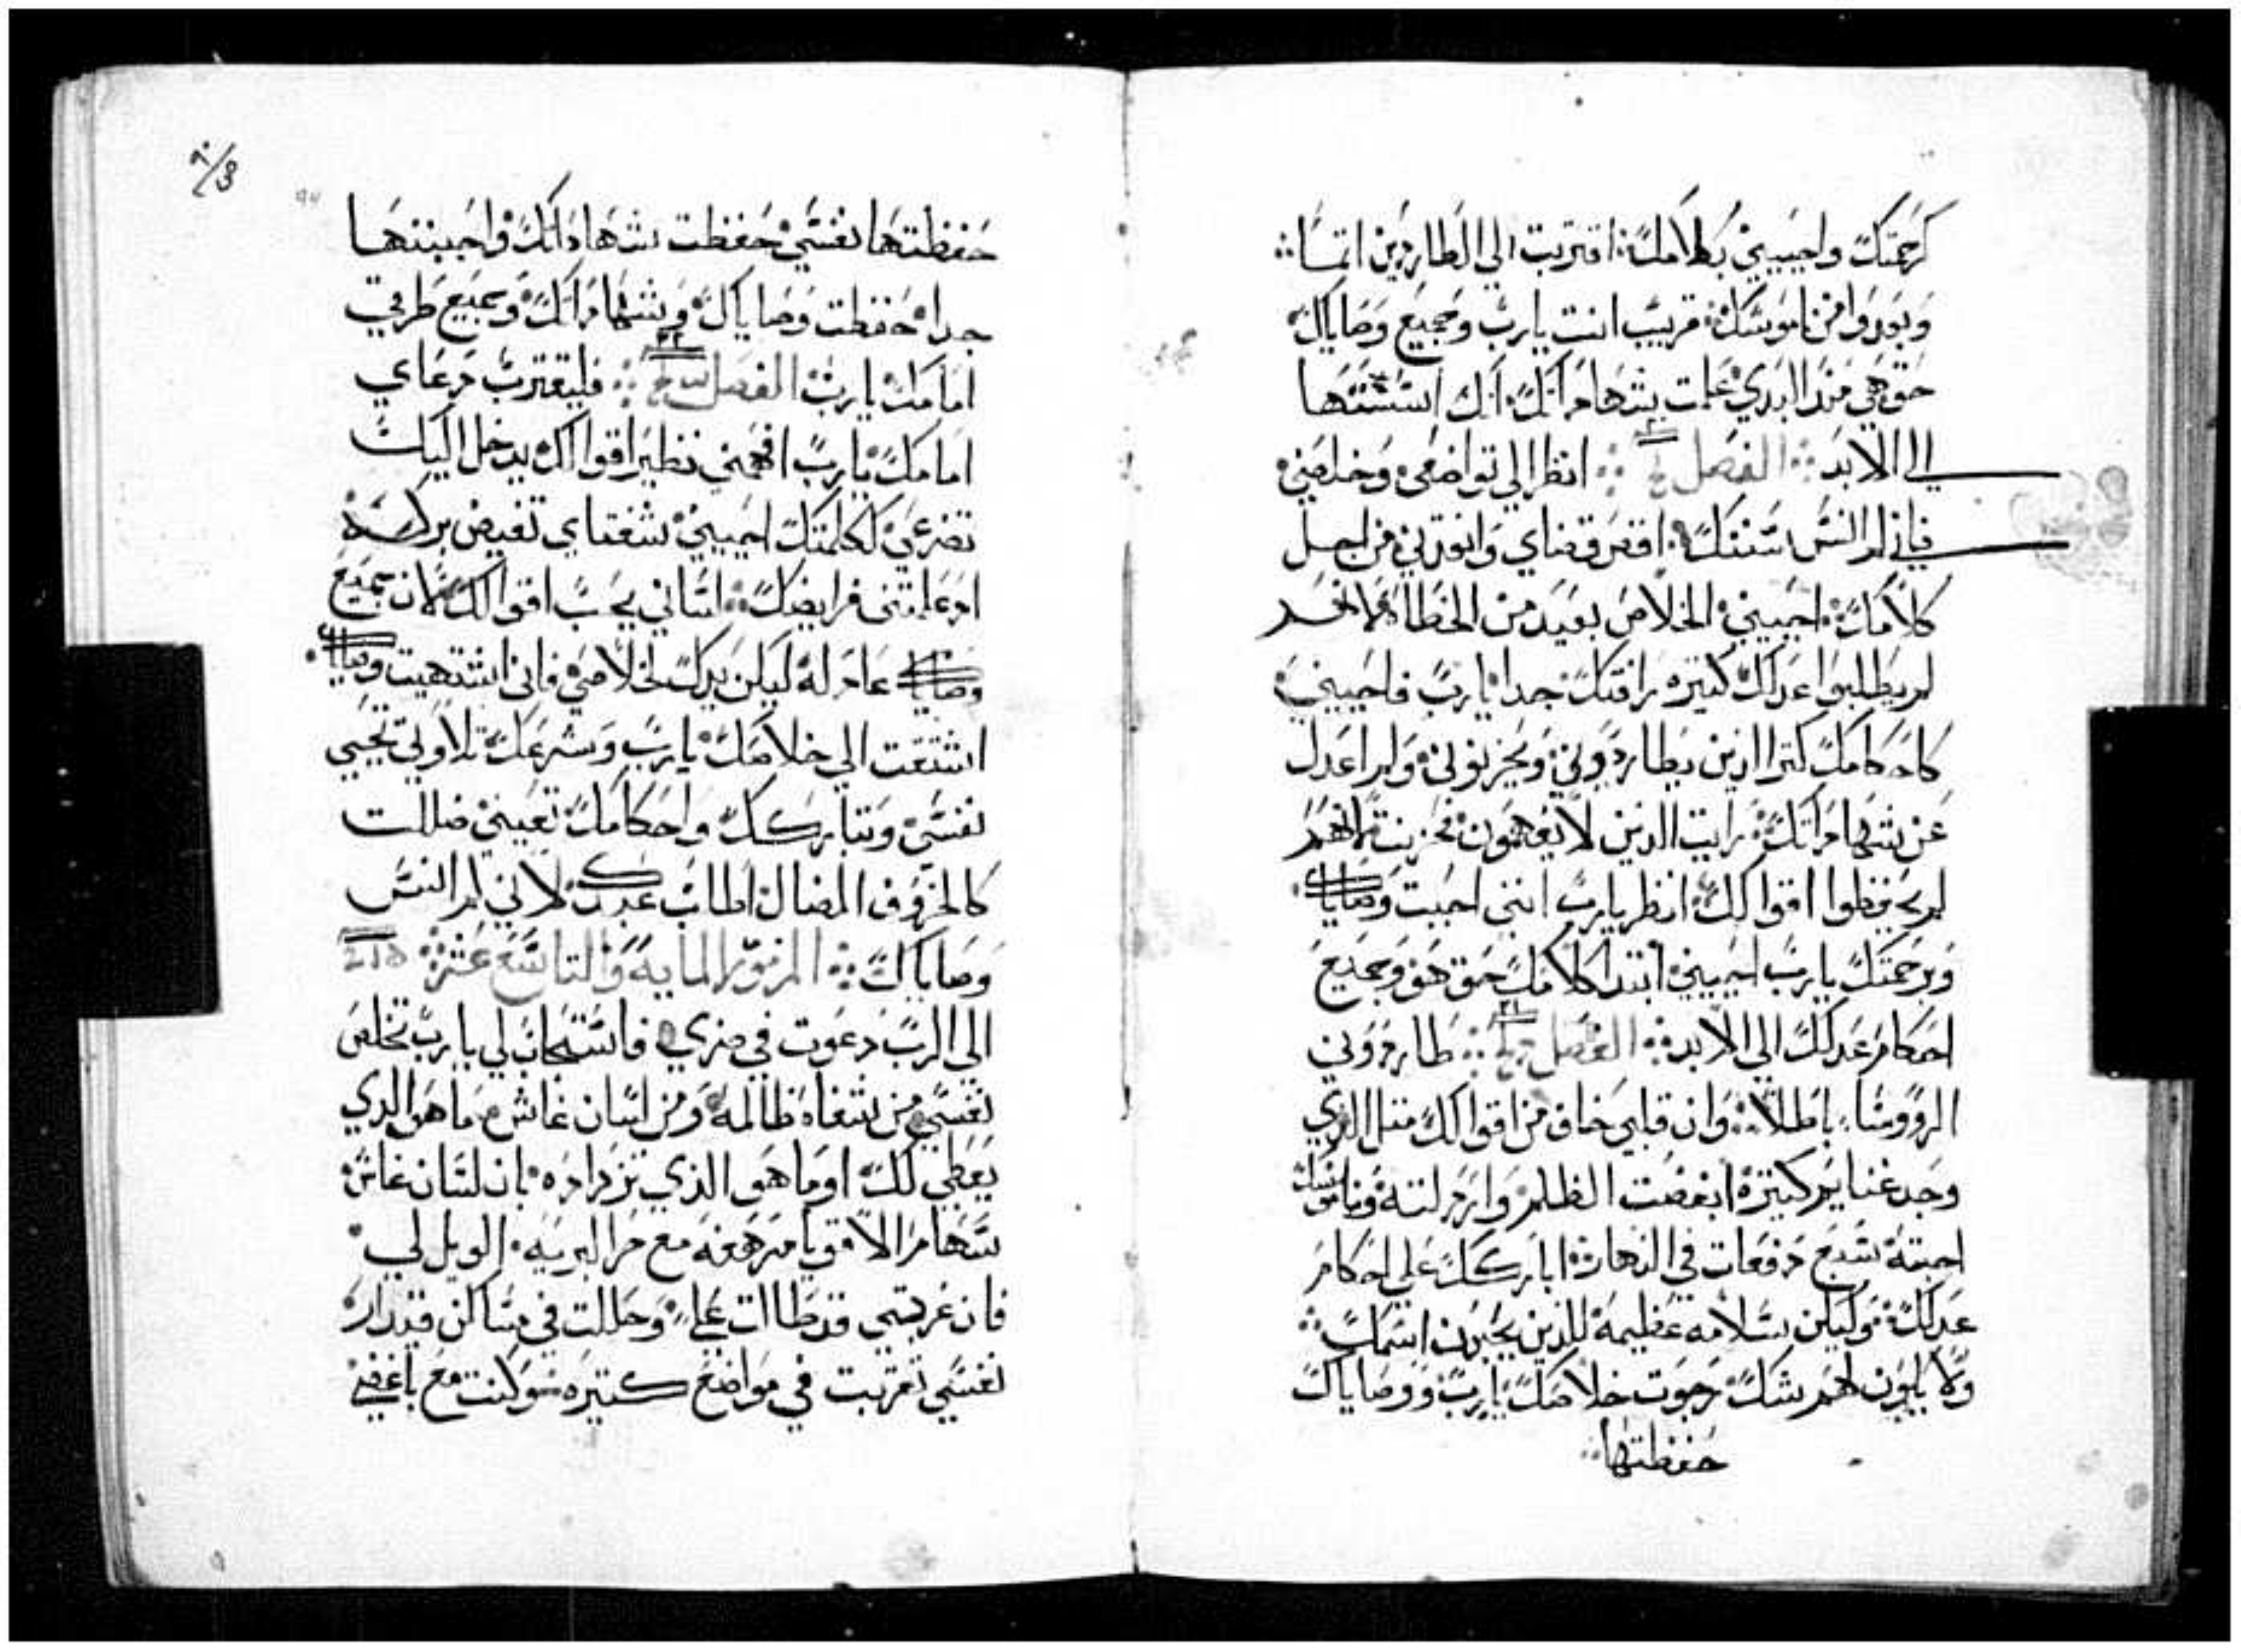 كرحمتك واحييني بكلامك اقتربت الي الطاردين اتما
وبعدوا من ناموسك قريب انت يارب وجميع وصاياك
حق هي منذ البدي علمت بشهاداتك انك اسستها
الي الابد الفصل انظر الي تواضعي وخلصني
فاني لم انس سننك اقض قضاي وانقدني من اجل
كلامك احييني الخلاص بعيد من الخطاه لانهم
لم يطلبوا عدلك كتيره رافتك جدا يارب فاحييني
كاحكامك كتيرا الدين يطاردوني ويحزنوني ولم اعدل
عن شهاداتك رايت الدين لا يفهمون فحزنت لانهم
لم يحفظوا اقوالك انظر يارب انني احببت وصاياك
وبرحمتك يارب احييني ابتدا كلامك حق هو وجميع
احكام عدلك الي الابد الفصل طاردوني
الروسا باطلا وان قلبي خاف من اقوالك متل الدي
وجد غنايم كتيرة ابغضت الظلم وارذلته وناموسك
احببته سبع دفعات في النهار اباركك علي احكام
عدلك وليكن سلامه عظيمة للذين يحبون اسمك
ولا يكون لهم شك رجوت خلاصك يارب ووصاياك
حفظتها
حفظتها نفسي حفظت شهاداتك واحببتها
جدا حفظت وصاياك وشهاداتك وجميع طرقي
امامك يارب الفصل فليقترب دعاي
امامك يارب افهمني نظير اقوالك يدخل اليك
تضرعي ككلمتك احييني شفتاي تفيض بركه
اد علمتني فرايضك لساني يجب اقوالك لان جميع
وصاياك عادله ليكن يدك لخلاصي فاني اشتهيت وصاياك
اشتقت الي خلاصك يارب وشرعك تلاوتي تحيي
نفسي وتباركك واحكامك تعينني ضللت
كالخروف الضال اطلب عبدك لاني لم انس
وصاياك المزمور المايه والتاسع عشر
الي الرب دعوت في ضري فاستجاب لي يارب تخلص
نفسي من شفاه ظالمه ومن لسان غاش ما هو الدي
يعطي لك او ما هو الذي تزداده بان لسان غاش
سهام الاقويا مرهفه مع جمر البريه الويل لي
فان غربتي قد طالت علي وحللت في مساكن قيدار
نفسي تغربت في مواضع كتيره وكنت مع باغضي